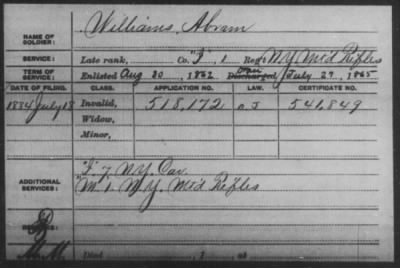 NAME OF SOLDIER: Williams, Abram
SERVICE: Late rank, Co. "I", 1 Reg't N.Y. Mt'd Rifles
TERM OF SERVICE: Enlisted Aug 30, 1862 Discharged July 27, 1865
DATE OF FILING. CLASS. APPLICATION NO. LAW. CERTIFICATE NO.
1884 July 18 Invalid, 518,172 541,849
Widow,
Minor,
ADDITIONAL SERVICES:
N.Y. Cav.
"M" 1 N.Y. Mt'd Rifles
REMARKS:
Died